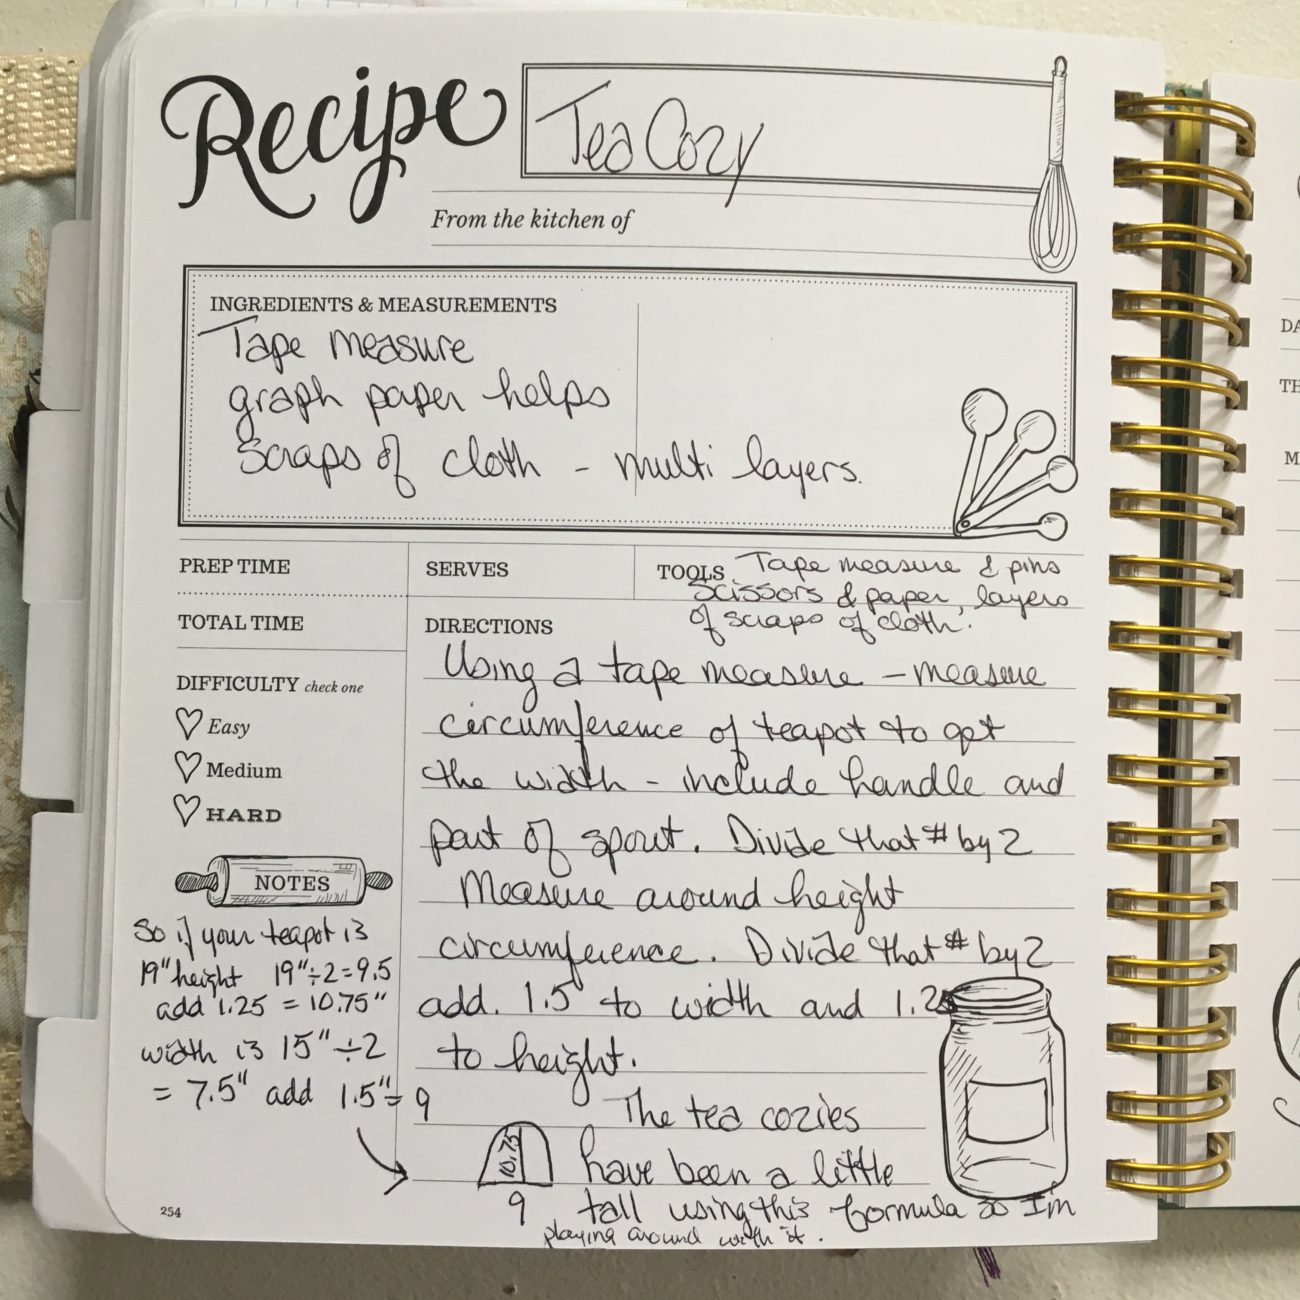 Recipe
Tea Cozy
From the kitchen of
INGREDIENTS & MEASUREMENTS
Tape measure
graph paper helps
Scraps of cloth - multi layers.
PREP TIME
SERVES
TOOLS Tape measure & pins
Scissors & paper, layers
of scraps of cloth.
TOTAL TIME
DIFFICULTY check one
Easy
Medium
HARD
NOTES
So if your teapot is
19" height 19"÷2=9.5
add 1.25 = 10.75"
width is 15"÷2
= 7.5" add 1.5"= 9
DIRECTIONS
Using a tape measure - measure
circumference of teapot to get
the width - include handle and
part of spout. Divide that # by 2
Measure around height
circumference. Divide that # by 2
add. 1.5 to width and 1.25
to height.
The tea cozies
have been a little
tall using this formula so I'm
playing around with it.
10.75
9
254
DA
TH
M